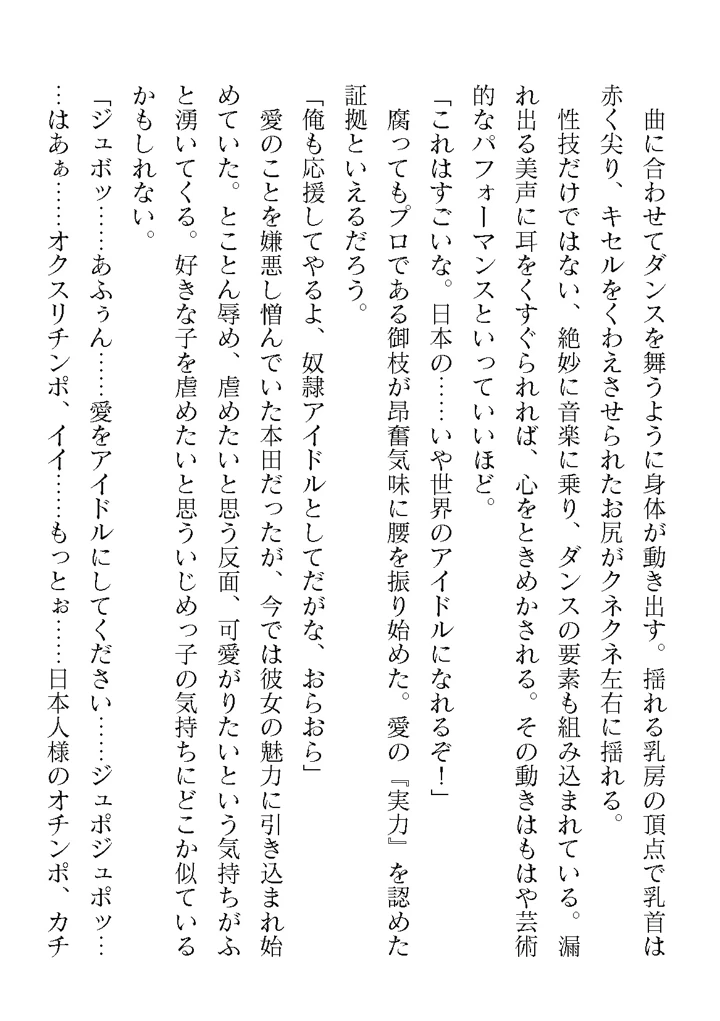 曲に合わせてダンスを舞うように身体が動き出す。揺れる乳房の頂点で乳首は
赤く尖り、キセルをくわえさせられたお尻がクネクネ左右に揺れる。
性技だけではない、絶妙に音楽に乗り、ダンスの要素も組み込まれている。漏
れ出る美声に耳をくすぐられれば、心をときめかされる。その動きはもはや芸術
的なパフォーマンスといっていいほど。
「これはすごいな。日本の……いや世界のアイドルになれるぞ！」
腐ってもプロである御枝が昂奮気味に腰を振り始めた。愛の『実力』を認めた
証拠といえるだろう。
「俺も応援してやるよ、奴隷アイドルとしてだがな、おらおら」
愛のことを嫌悪し憎んでいた本田だったが、今では彼女の魅力に引き込まれ始
めていた。とことん辱め、虐めたいと思う反面、可愛がりたいという気持ちがふ
と湧いてくる。好きな子を虐めたいと思ういじめっ子の気持ちにどこか似ている
かもしれない。
「ジュボッ……あふぅん……愛をアイドルにしてください……ジュポジュポッ…
…はあぁ……オクスリチンポ、イイ……もっとぉ……日本人様のオチンポ、カチ